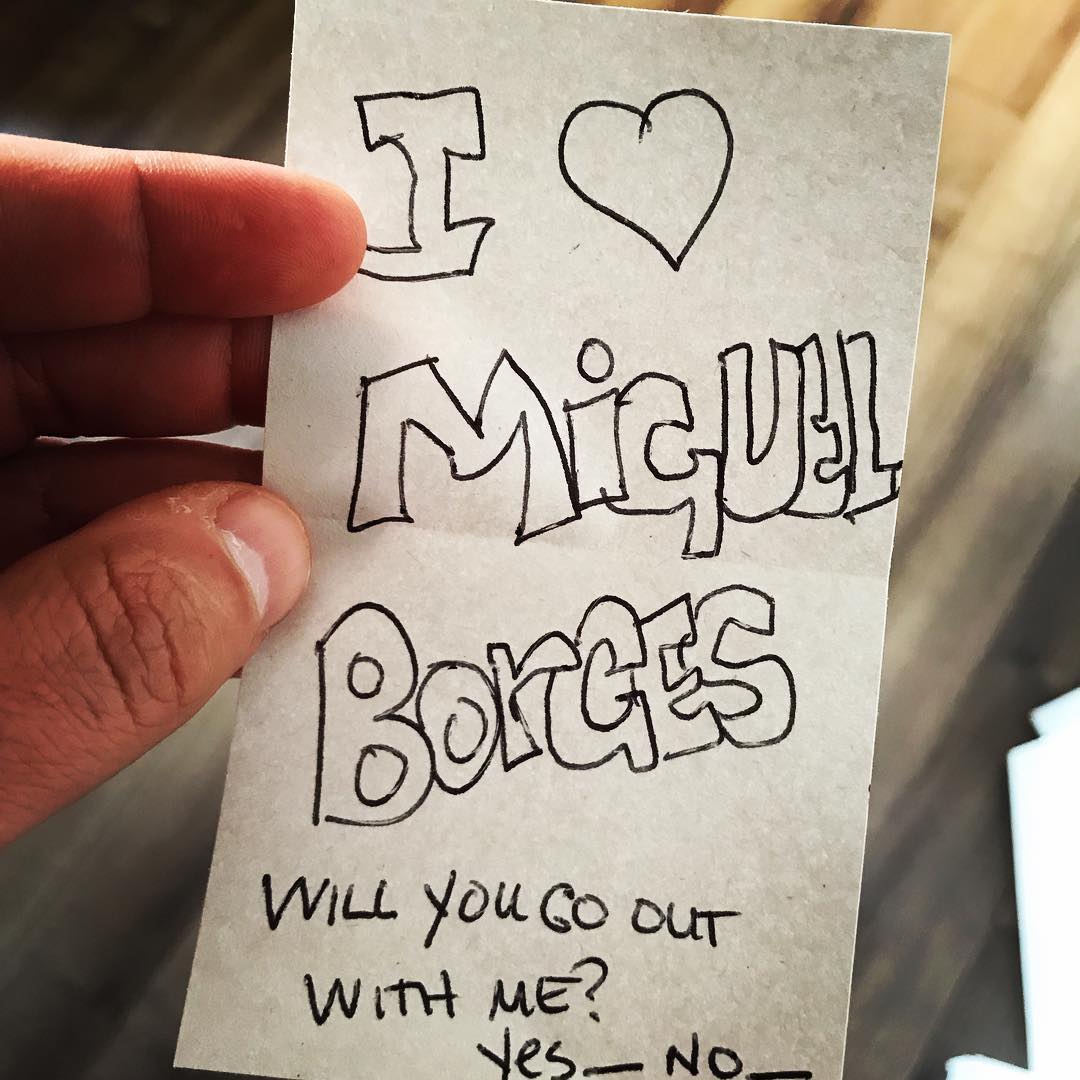 I ♡
MiGUEL
BorGES
WILL YOU GO OUT
WITH ME?
Yes_ NO_